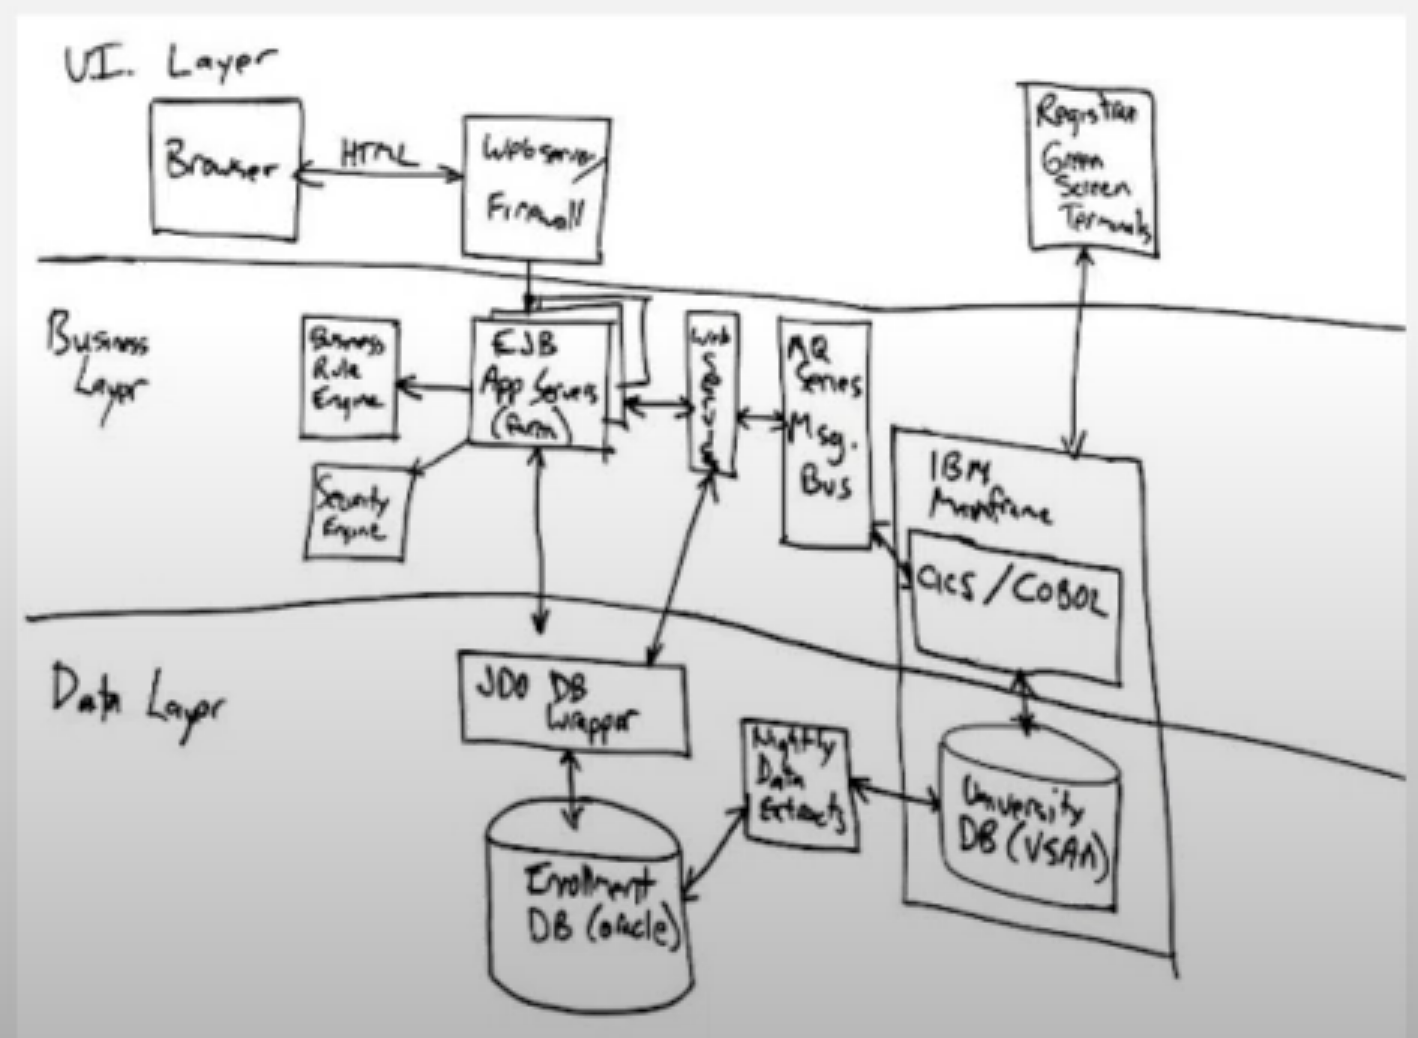 UI. Layer
Browser
HTML
Webserver/
Firewall
Registrar
Green
Screen
Terminals
Business
Layer
Business
Rule
Engine
EJB
App Servers
(farm)
Web
Services
MQ
Series
Msg.
Bus
Security
Engine
IBM
Mainframe
CICS/COBOL
Data Layer
JDO DB
Wrapper
Nightly
Data
Extracts
University
DB (VSAM)
Enrollment
DB (oracle)